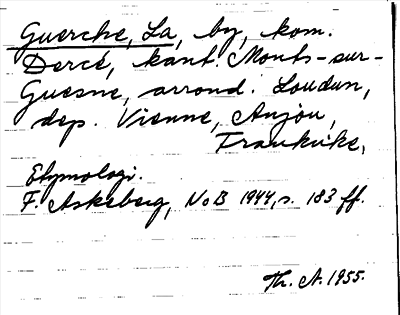 Guerche, La, by, kom.
Dercé, kant. Monts-sur-
Guesne, arrond. Loudun,
dep. Vienne, Anjou,
Frankrike,
Etymologi.
F. Askeberg, NoB 1944, s. 183 ff.
Th. A. 1955.